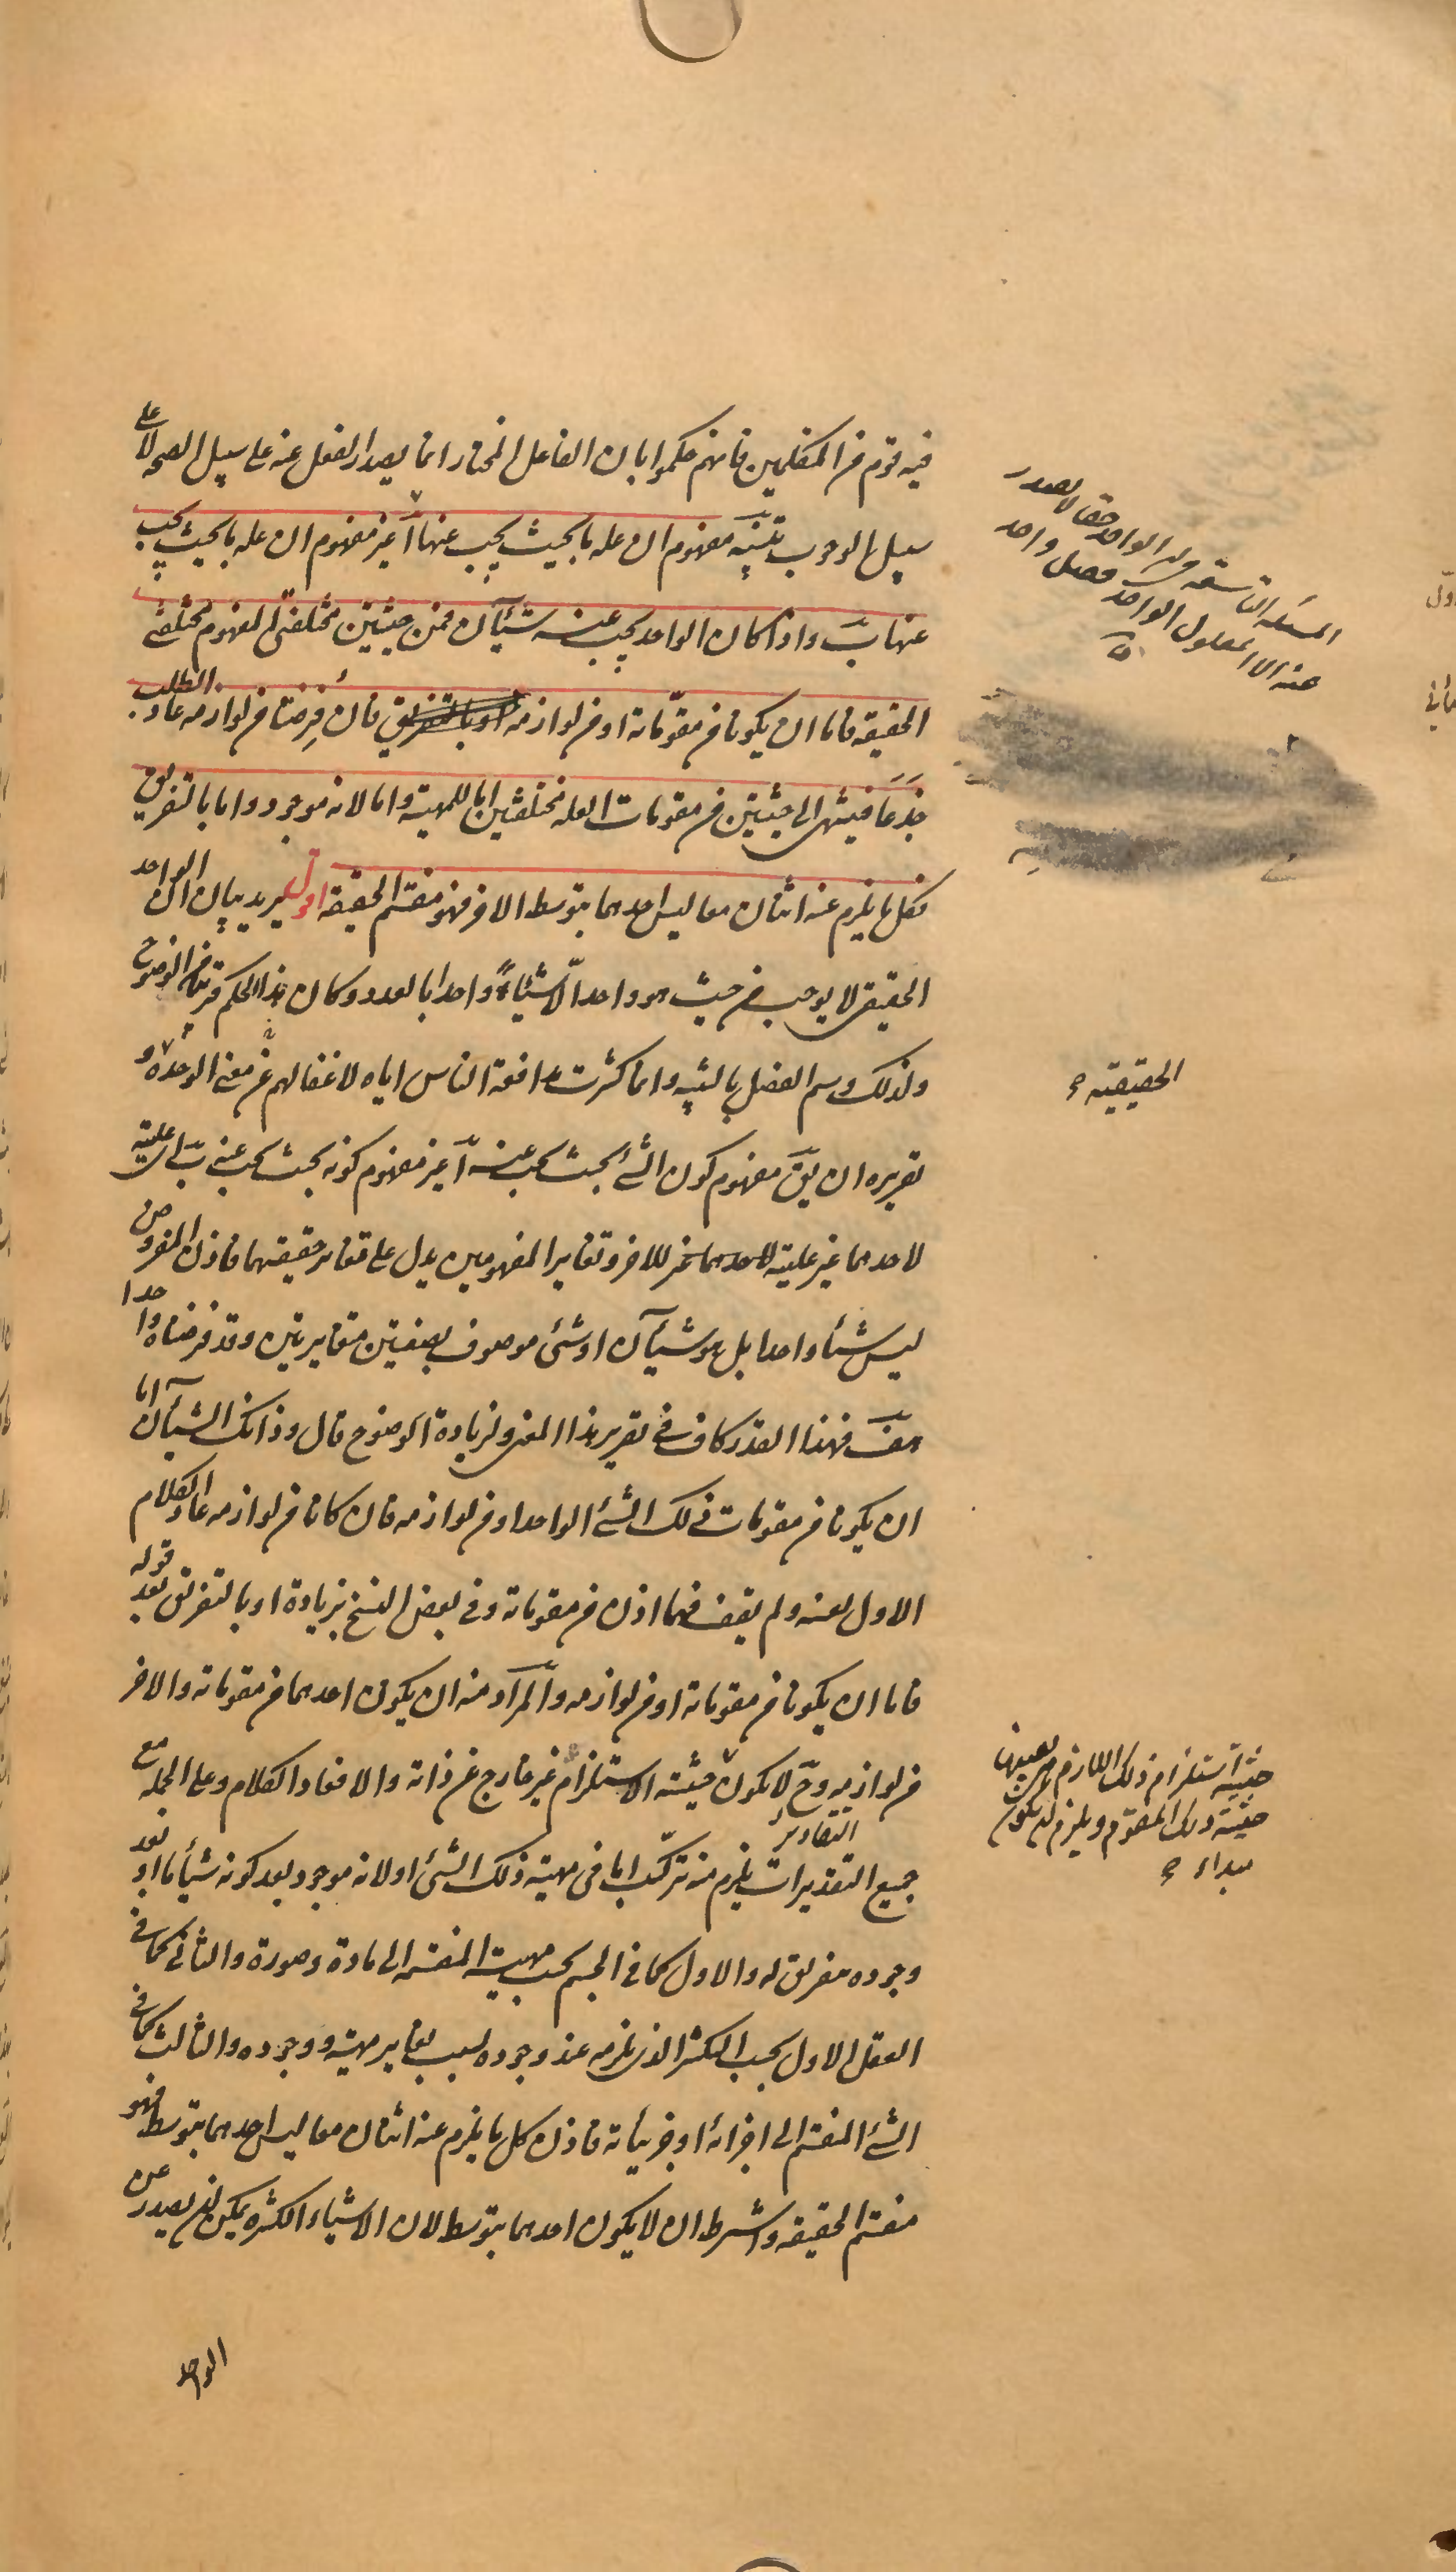 فيه قوم من المتكلمين فانهم حكموا بان الفاعل المختار انما يصدر الفعل عنه على سبيل الصحة لا على
سبيل الوجوب تنبيه مفهوم ان علة ما بحيث يجب عنها آ غير مفهوم ان علة ما بحيث يجب
عنها ب واذا كان الواحد يجب عنه شيئان فمن حيثيتين مختلفتي المفهوم مختلفتي
الحقيقه فاما ان يكونا من مقوماته او من لوازمه او بالتفريق فان فرضتا من لوازمه عاد الطلب
جذعا فينتهى الى حيثيتين من مقومات العله مختلفتين اما للمهية واما لانه موجود واما بالتفريق
فكل ما يلزم عنه اثنان معا ليس احدهما بتوسط الاخر فهو منقسم الحقيقه اقول يريد بيان ان الواحد
الحقيقى لا يوجب من حيث هو واحد الا شيئا واحدا بالعدد وكان هذا الحكم قريب من الوضوح
ولذلك وسم الفصل بالتنبيه وانما كثرت مدافعة الناس اياه لاغفالهم عن معنى الوحدة و
تقريره ان يق مفهوم كون الشئ بحيث يجب عنه آ غير مفهوم كونه بحيث يجب عنه ب اى علية
لاحدهما غير عليته للاخر وتغاير المفهومين يدل على تغاير حقيقتهما فاذن المفروض
ليس شيئا واحدا بل هو شيئآن او شئ موصوف بصفتين متغايرتين وقد فرضناه واحدا
هف فهذا القدر كاف فى تقرير هذا المعنى ولزيادة الوضوح قال وذانك الشيآن اما
ان يكونا من مقومات ذلك الشئ الواحد او من لوازمه فان كانا من لوازمه عاد الكلام
الاول بعينه ولم يقف فهما اذن من مقوماته وفى بعض النسخ بزيادة او بالتفريق بعد قوله
فاما ان يكونا من مقوماته او من لوازمه والمراد منه ان يكون احدهما من مقوماته والاخر
من لوازمه وح لا يكون حيثية الاستلزام غير خارج عن ذاته والا فعاد الكلام وعلى الجملة مع
جميع التقديرات يلزم منه تركب اما فى مهية ذلك الشئ او لانه موجود بعد كونه شيأ ما او بعد
التقادير
وجوده بتفريق له والاول كما فى الجسم بحسب مهيته المنقسمه الى مادة وصورة والثانى كما فى
العقل الاول بحسب التكثر الذى يلزمه عند وجوده بسبب تغاير مهيته ووجوده والثالث كما فى
الشئ المنقسم الى اجزائه او جزئياته فاذن كل ما يلزم عنه اثنان معا ليس احدهما بتوسط فهو
منقسم الحقيقه واشترط ان لا يكون احدهما بتوسط لان الاشياء الكثيره يمكن ان يصدر عن
الواحد
المسئله التاسعه ان الواحد حقا لا يصدر
عنه الا المعلول الواحد فصل واحد
الحقيقيّة
حيثية استلزام ذلك اللازم هى بعينها
حيثية ذلك المقوم ويلزم ان يكون
مبداء